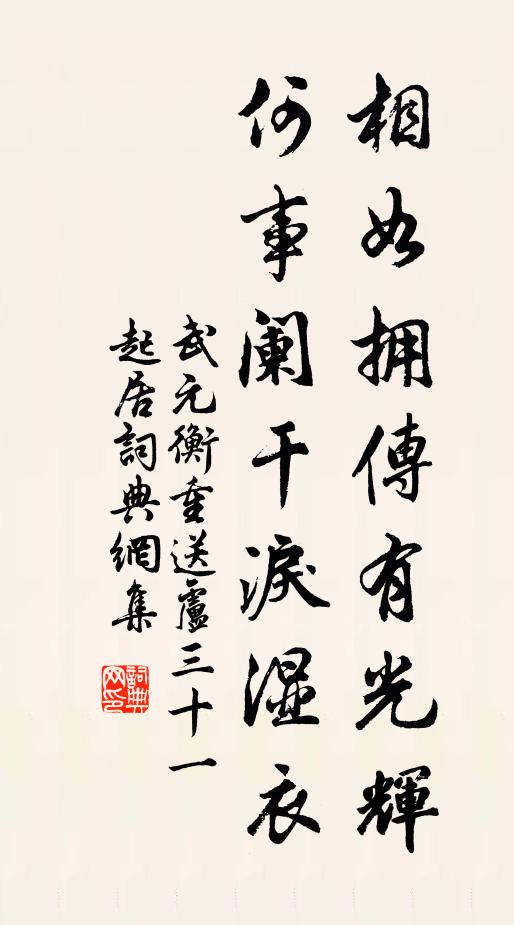 相如拥傳有光輝
何事阑干淚湿衣
武元衡重送盧三十一
起居詞典網集
詞典
网印